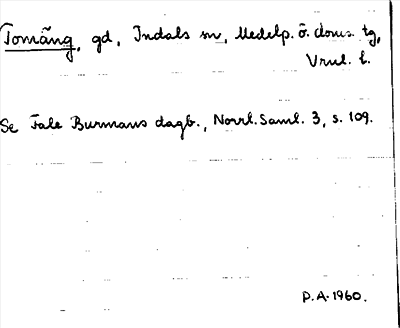 Tomäng, gd, Indals sn, Medelp. ö. doms. tg,
Vnl. l.
Se Fale Burmans dagb., Norrl. Saml. 3, s. 109.
P.A. 1960.